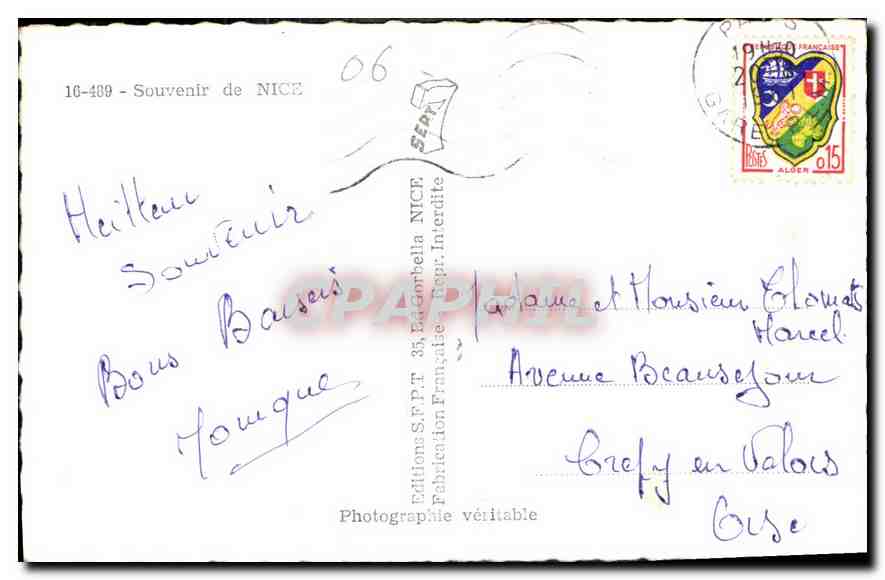 16-489 - Souvenir de NICE
06
SEPT
Meilleur
Souvenir
Bons Baisers
Monique
Editions S.F.P.T 35, Bd Gorbella NICE
Fabrication Française - Repr. Interdite
Photographie véritable
CPAPHIL
PARIS
19H30
GARE
REPUBLIQUE FRANÇAISE
POSTES
0,15
ALGER
Madame et Monsieur
Marcel
Avenue Beausejour
Crepy en Valois
Oise